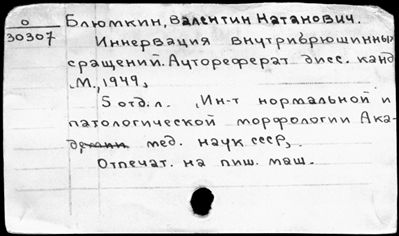 О
30307
Блюмкин, Валентин Натанович.
Иннервация внутрибрюшинных
сращений. Автореферат дисс. канд
.М., 1949,
5 отд. л. (Ин-т нормальной и
патологической морфологии Ака-
демии мед. наук СССР).
Отпечат. на пиш. маш.